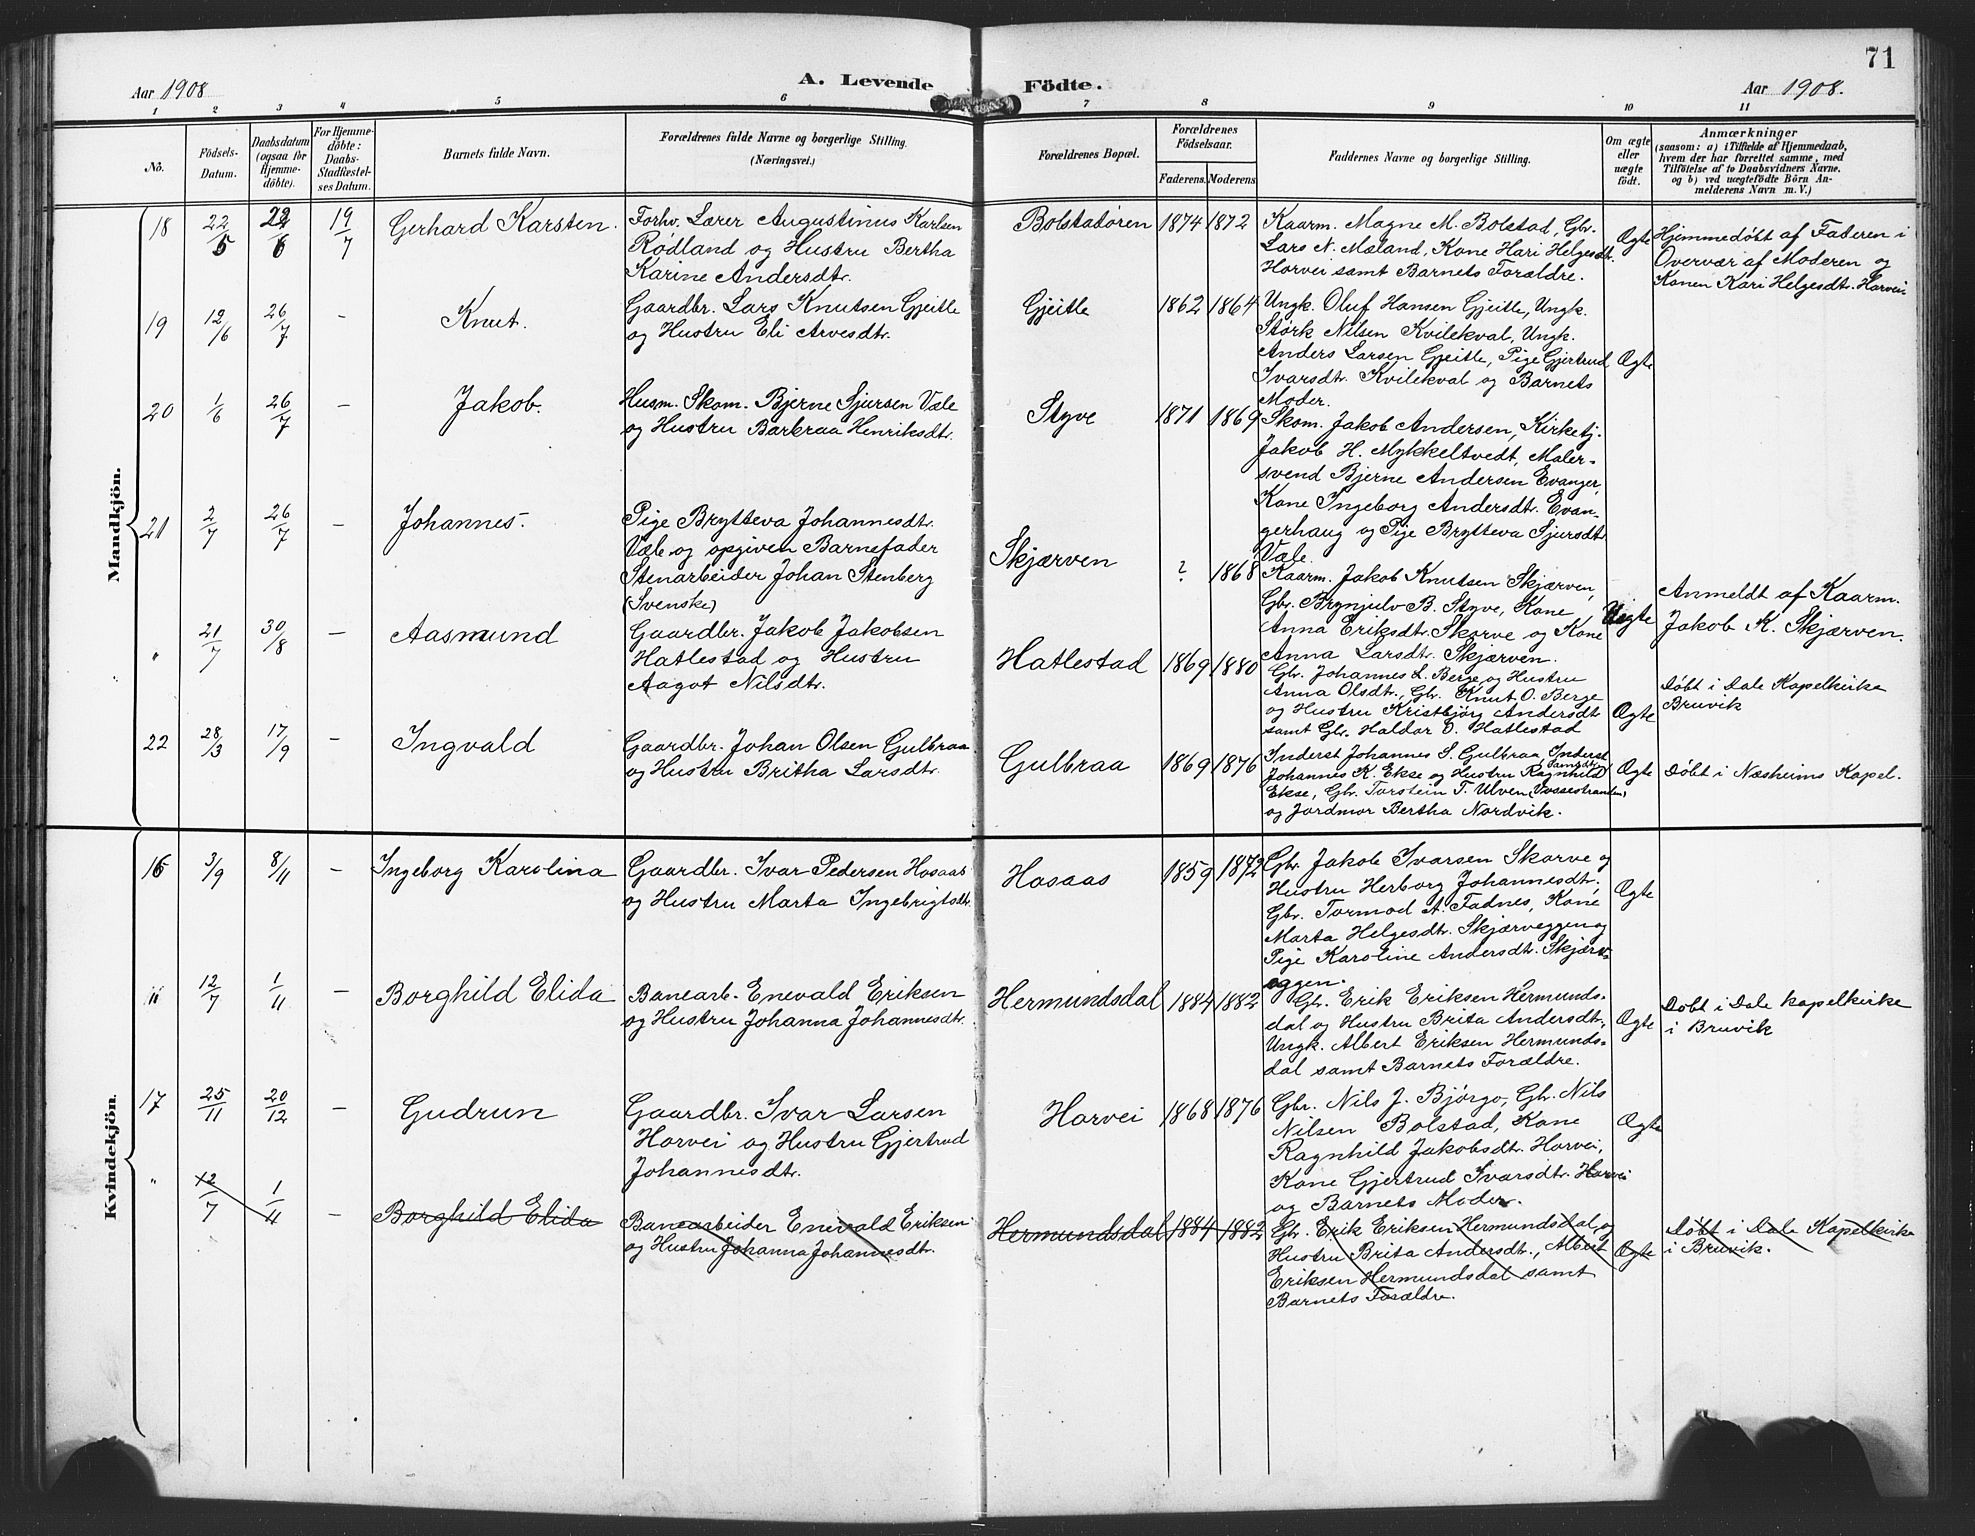 71
Aar 1908
A. Levende Födte.
Aar 1908.
1 2 3 4 5 6 7 8 9 10 11
No.
Födsels-Datum.
Daabsdatum (ogsaa for Hjemmedöbte).
For Hjemmedöbte: Daabs-Stadfæstelses Datum.
Barnets fulde Navn.
Forældrenes fulde Navne og borgerlige Stilling.
(Næringsvei.)
Forældrenes Bopæl.
Forældrenes Födselsaar.
Faderens. Moderens
Faddernes Navne og borgerlige Stilling.
Om ægte eller uægte födt.
Anmærkninger
(saasom: a) i Tilfælde af Hjemmedaab,
hvem der har forrettet samme, med
Tilföielse af to Daabsvidners Navne.
og b) ved uægtefödte Börn An-
melderens Navn m. V.)
Mandkjön.
18 22/5 22/6 19/7 Gerhard Karsten.
Forhv. Lærer Augustinus Karlsen
Rødland og Hustru Bertha
Karine Andersdtr.
Bolstadøren 1874 1872
Kaarm. Magne M. Bolstad, Gbr.
Lars N. Mæland, Kone Kari Helgesdtr.
Horvei samt Barnets Forældre.
Ægte
Hjemmedøbt af Faderen i
Overvær af Moderen og
Konen Kari Helgesdtr. Horvei
19 12/6 26/7 – Knut.
Gaardbr. Lars Knutsen Gjeitle
og Hustru Eli Arvesdtr.
Gjeitle 1862 1864
Ungk. Oluf Hansen Gjeitle, Ungk.
Størk Nilsen Kvilekval, Ungk.
Anders Larsen Gjeitle, Pige Gjertrud
Ivarsdtr. Kvilekval og Barnets
Moder.
Ægte
20 1/6 26/7 – Jakob.
Husm. Skom. Bjerne Sjursen Væle
og Hustru Barbraa Henriksdtr.
Styve 1871 1869
Skom. Jakob Andersen, Kirketj.
Jakob H. Mykkeltvedt, Maler-
svend Bjerne Andersen Evanger,
Kone Ingeborg Andersdtr. Evan-
gerhaug og Pige Brytteva Sjursdtr.
Væle
21 2/7 26/7 – Johannes.
Pige Brytteva Johannesdtr.
Væle og opgiven Barnefader
Stenarbeider Johan Stenberg
(Svenske)
Skjærven ? 1868
Kaarm. Jakob Knutsen Skjærven,
Gbr. Brynjulv B. Styve, Kone
Anna Eriksdtr. Skorve og Kone
Anna Larsdtr. Skjærven.
Uægte
Anmeldt af Kaarm.
Jakob K. Skjærven.
" 21/7 30/8 – Aasmund
Gaardbr. Jakob Jakobsen
Hatlestad og Hustru
Aagot Nilsdtr.
Hatlestad 1869 1880
Gbr. Johannes L. Berge og Hustru
Anna Olsdtr., Gbr. Knut O. Berge
og Hustru Kristbjørg Andersdtr
samt Gbr. Haldor O. Hatlestad
Ægte
Døbt i Dale Kapelkirke
Bruvik
22 28/3 17/9 – Ingvald
Gaardbr. Johan Olsen Gulbraa
og Hustru Britha Larsdtr.
Gulbraa 1869 1876
Inderst Johannes S. Gulbraa, Inderst
Johannes K. Ekse og Hustru Ragnhild
Ekse, Gbr. Torstein T. Ulven (Vossestranden)
og Jordmor Bertha Nordvik.
Ægte
Døbt i Næsheims Kapel.
Kvindekjön.
16 3/9 8/11 – Ingeborg Karolina
Gaardbr. Ivar Pedersen Hosaas
og Hustru Marta Ingebrigtsdtr.
Hosaas 1859 1872
Gbr. Jakob Ivarsen Skorve og
Hustru Herborg Johannesdtr.,
Gbr. Tormod A. Fadnes, Kone
Marta Helgesdtr. Skjærveggen og
Pige Karoline Andersdtr. Skjærv-
eggen.
Ægte
" 12/7 1/11 – Borghild Elida
Banearb. Enevald Eriksen
og Hustru Johanna Johannesdtr.
Hermundsdal 1884 1882
Gb. Erik Eriksen Hermunds-
dal og Hustru Brita Andersdtr.,
Ungk. Albert Eriksen Hermunds-
dal samt Barnets Forældre.
Ægte
Døbt i Dale Kapelkirke
i Bruvik
17 25/11 20/12 – Gudrun
Gaardbr. Ivar Larsen
Horvei og Hustru Gjertrud
Johannesdtr.
Horvei 1868 1876
Gbr. Nils J. Bjørgo, Gb. Nils
Nilsen Bolstad, Kone
Ragnhild Jakobsdtr. Horvei,
Kone Gjertrud Ivarsdtr. Horvei
og Barnets Moder.
Ægte
" 12/7 1/11 – Borghild Elida
Banearbeider Enevald Eriksen
og Hustru Johanna Johannesdtr.
Hermundsdal 1884 1882
Gb. Erik Eriksen Hermundsdal, og
Hustru Brita Andersdtr., Albert
Eriksen Hermundsdal samt
Barnets Forældre.
Ægte
Døbt i Dale Kapelkirke
i Bruvik.